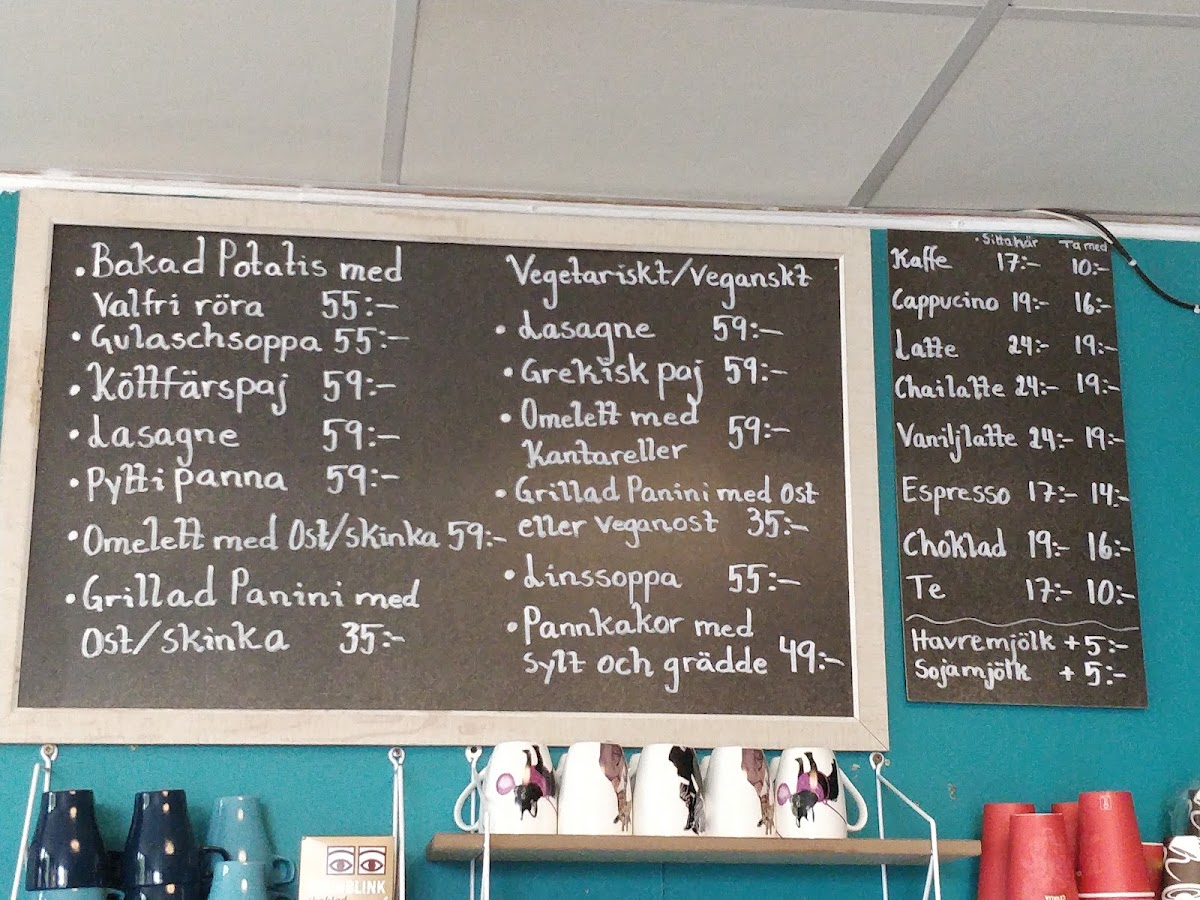 • Bakad Potatis med
Valfri röra 55:-
• Gulaschsoppa 55:-
• Köttfärspaj 59:-
• Lasagne 59:-
• Pytti panna 59:-
• Omelett med Ost/skinka 59:-
• Grillad Panini med
Ost/skinka 35:-
Vegetariskt/Veganskt
• Lasagne 59:-
• Grekisk paj 59:-
• Omelett med
Kantareller 59:-
• Grillad Panini med Ost
eller veganost 35:-
• Linssoppa 55:-
• Pannkakor med
sylt och grädde 49:-
Sitta här Ta med
Kaffe 17:- 10:-
Cappucino 19:- 16:-
Latte 24:- 19:-
Chailatte 24:- 19:-
Vaniljlatte 24:- 19:-
Espresso 17:- 14:-
Choklad 19:- 16:-
Te 17:- 10:-
Havremjölk + 5:-
Sojamjölk + 5:-
BLINK